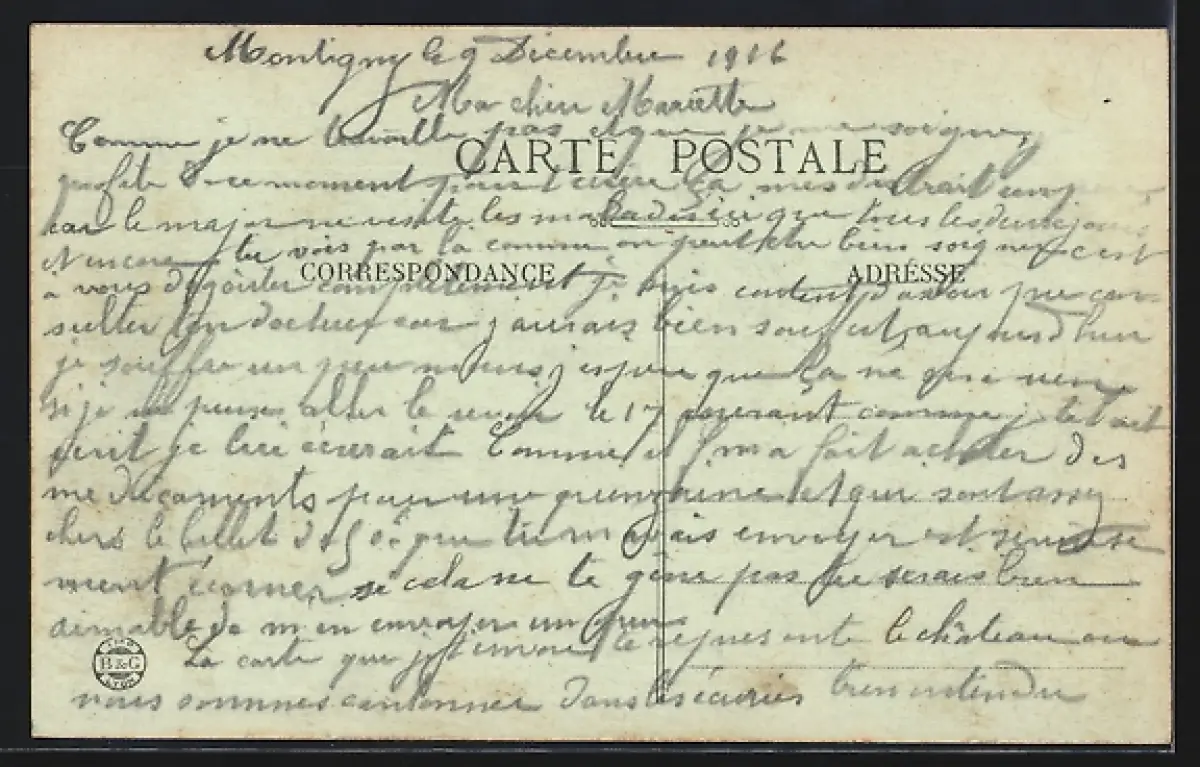 Montigny le 9 Décembre 1916
Ma chère Mariette
Comme je ne travaille pas et que je me soigne,
CARTE POSTALE
profite de ce moment pour t'écrire
car le major ne visite les malades ici que tous les deux jours
N encore tu vois par la comme on peut etre bien soigné c'est
CORRESPONDANCE
ADRESSE
a vous dégouter complètement je suis content d'avoir pu con-
sulter ton docteur car j aurais bien souffert, aujourd hui
je souffre un peu moins, j espère que ça ne sera rien
si je ne peux aller le revoir le 17 courant comme je te l'ait
écrit je lui écrirait Comme il m a fait acheter des
medicaments pour une quinzaine et qui sont assez
chers le billet de 50 que tu m avais envoyer est
ment écorner si cela ne te gêne pas tu serais bien
aimable de m en envoyer un peu
La carte que je t envoie te représente le château où
B & G
LYON
nous sommes cantonner dans les écuries bien entendu